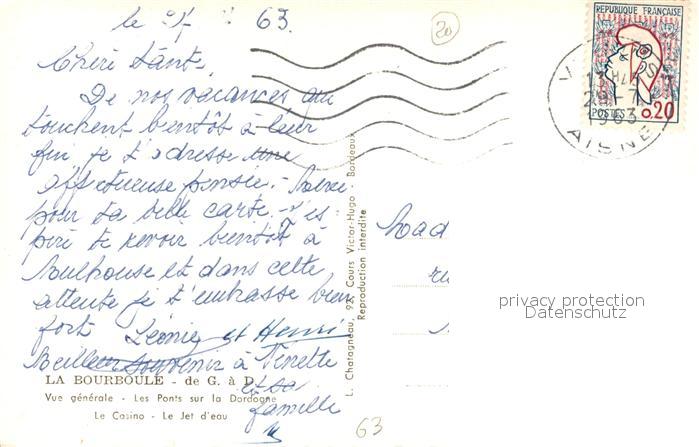 le 63.
20
Chère
De nos vacances qui
touchent bientôt à leur
fin je t'adresse une
affectueuse pensée. - Merci
pour ta belle carte.
te revoir bientôt à
Mulhouse et dans cette
attente je t'embrasse bien
fort Léonie et Henri
Meilleur souvenir à Venette
et sa
famille
LA BOURBOULE - de G. à D.
Vue générale - Les Ponts sur la Dordogne
Le Casino - Le Jet d'eau
L. Chatagneau, 92, Cours Victor-Hugo - Bordeaux
Reproduction interdite
REPUBLIQUE FRANÇAISE
POSTES 0,20
1963
AISNE
Mad
ru
privacy protection
Datenschutz
63